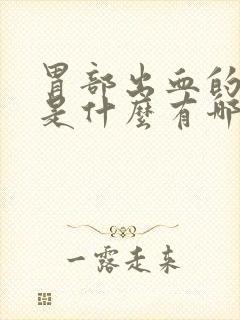 胃部出血的
是什麼有哪
一露走来